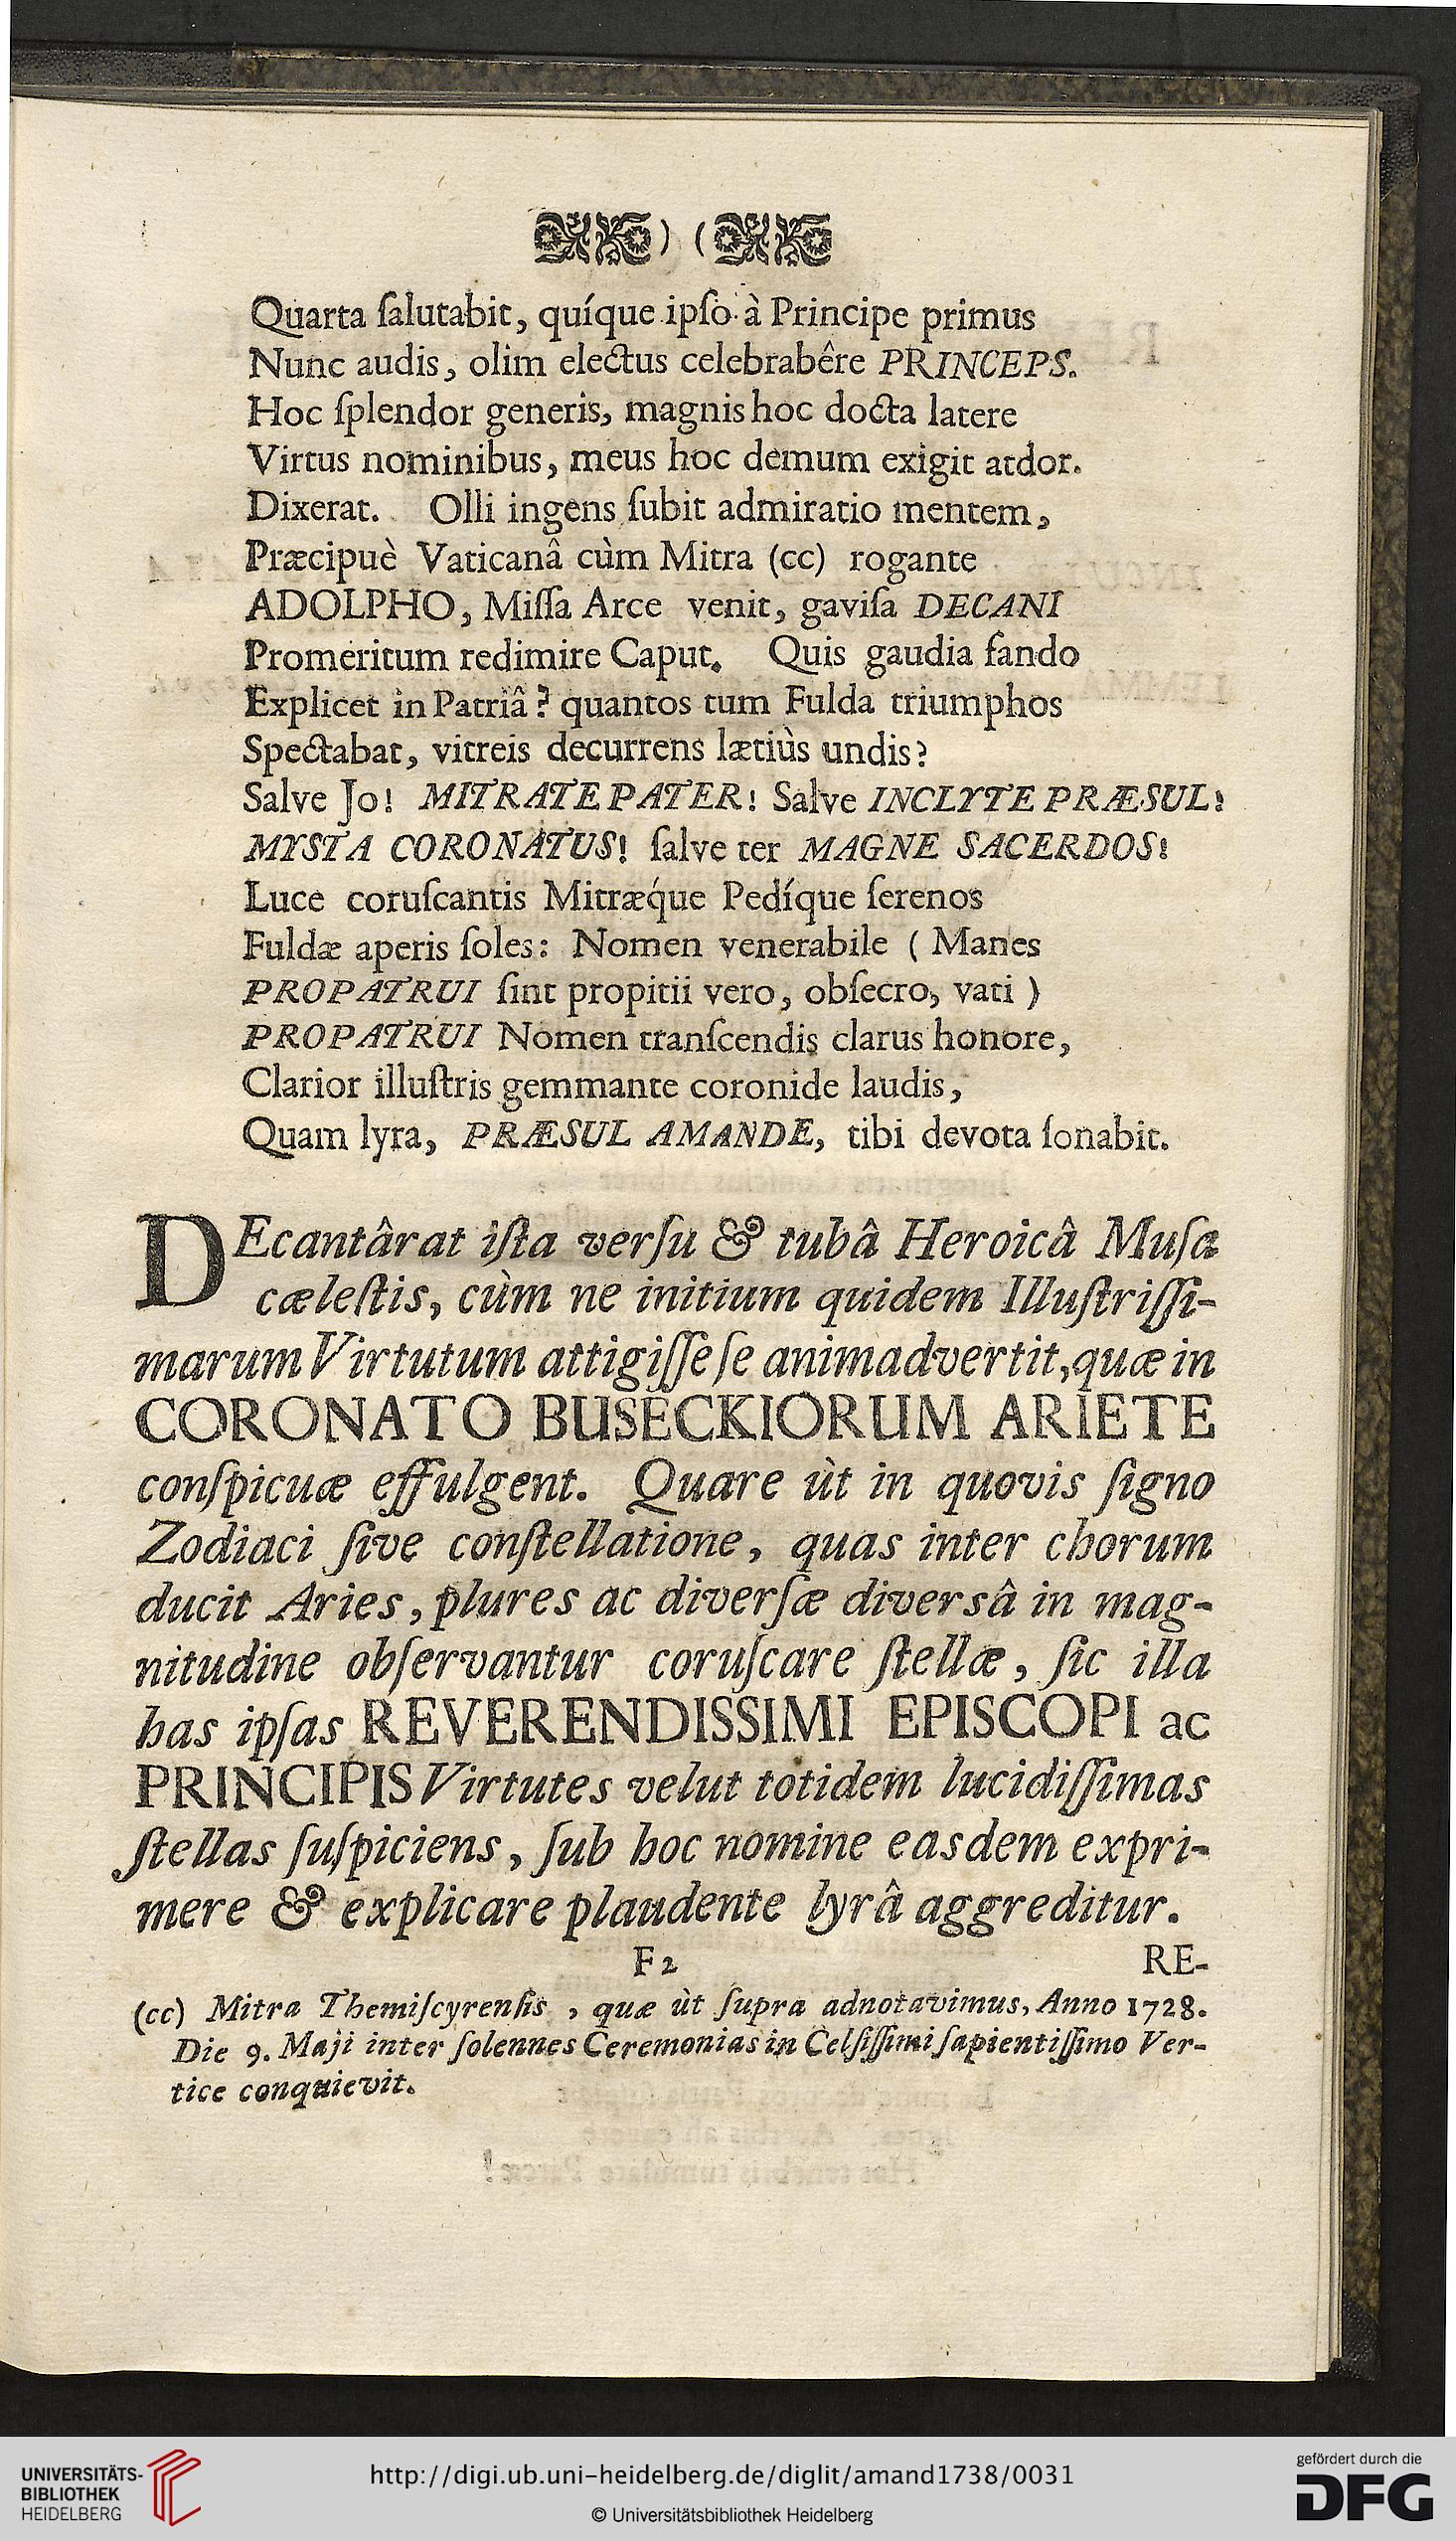 ) (
Quarta ſalutabit, quíque ipſo à Principe primus
Nunc audis, olim electus celebrabêre PRINCEPS.
Hoc ſplendor generis, magnis hoc docta latere
Virtus nominibus, meus hoc demum exigit ardor.
Dixerat. Olli ingens ſubit admiratio mentem,
Præcipuè Vaticanâ cùm Mitra (cc) rogante
ADOLPHO, Miſſa Arce venit, gaviſa DECANI
Promeritum redimire Caput. Quis gaudia fando
Explicet in Patriâ? quantos tum Fulda triumphos
Spectabat, vitreis decurrens lætiùs undis?
Salve Jo! MITRATE PATER! Salve INCLYTE PRÆSUL!
MYSTA CORONATUS! ſalve ter MAGNE SACERDOS!
Luce coruſcantis Mitræq́ue Pedíque ſerenos
Fuldæ aperis ſoles: Nomen venerabile ( Manes
PROPATRUI ſint propitii vero, obſecro, vati )
PROPATRUI Nomen tranſcendis clarus honore,
Clarior illuſtris gemmante coronide laudis,
Quam lyra, PRÆSUL AMANDE, tibi devota ſonabit.
DEcantârat iſta verſu & tubâ Heroicâ Muſa
cæleſtis, cùm ne initium quidem Illuſtriſſi-
marum Virtutum attigiſſe ſe animadvertit, quæ in
CORONATO BUSECKIORUM ARIETE
conſpicuæ effulgent. Quare ùt in quovis ſigno
Zodiaci ſive conſtellatione, quas inter chorum
ducit Aries, plures ac diverſæ diversâ in mag-
nitudine obſervantur coruſcare ſtellæ, ſic illa
has ipſas REVERENDISSIMI EPISCOPI ac
PRINCIPIS Virtutes velut totidem lucidiſſimas
ſtellas ſuſpiciens, ſub hoc nomine easdem expri-
mere & explicare plaudente lyrâ aggreditur.
F 2 RE-
(cc) Mitra Themiſcyrenſis, quæ ùt ſupra adnotavimus, Anno 1728.
Die 9. Maji inter ſolennes Ceremonias in Celſiſſimi ſapientiſſimo Ver-
tice conquievit.
UNIVERSITÄTS-
BIBLIOTHEK
HEIDELBERG
http://digi.ub.uni-heidelberg.de/diglit/amand1738/0031
© Universitätsbibliothek Heidelberg
gefördert durch die
DFG